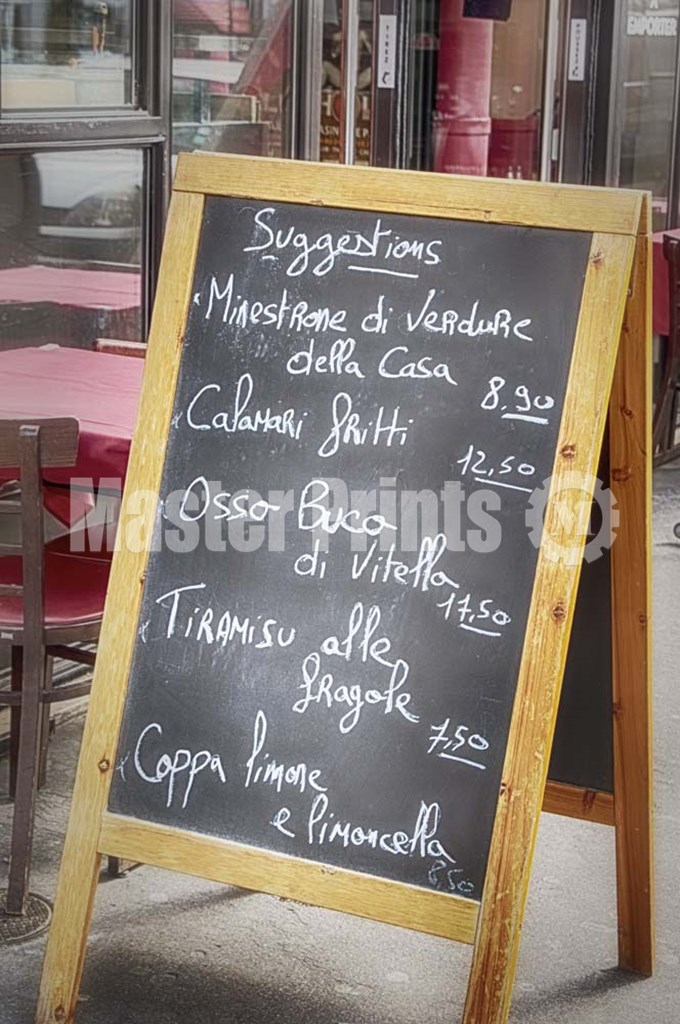 TIREZ
POUSSEZ
A
EMPORTER
Suggestions
Minestrone di Verdure
della Casa
8,90
Calamari fritti
12,50
Master Prints
Osso Buco
di Vitella
17,50
Tiramisu alle
fragole
7,50
Coppa limone
e limoncella
8,50